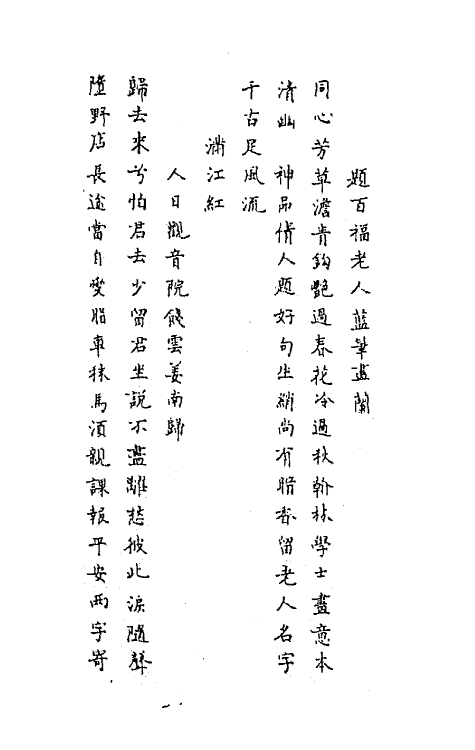 題百福老人藍筆畫蘭
同心芳草澹青鈎艷過春花冷過秋翰林學士畫意本
清幽　神品倩人題好句生綃尚有暗香留老人名字
千古足風流
滿江紅
人日觀音院餞雲姜南歸
歸去來兮怕君去少留君坐說不盡離愁彼此淚隨聲
墮野店長途當自愛脂車秣馬須親課報平安兩字寄